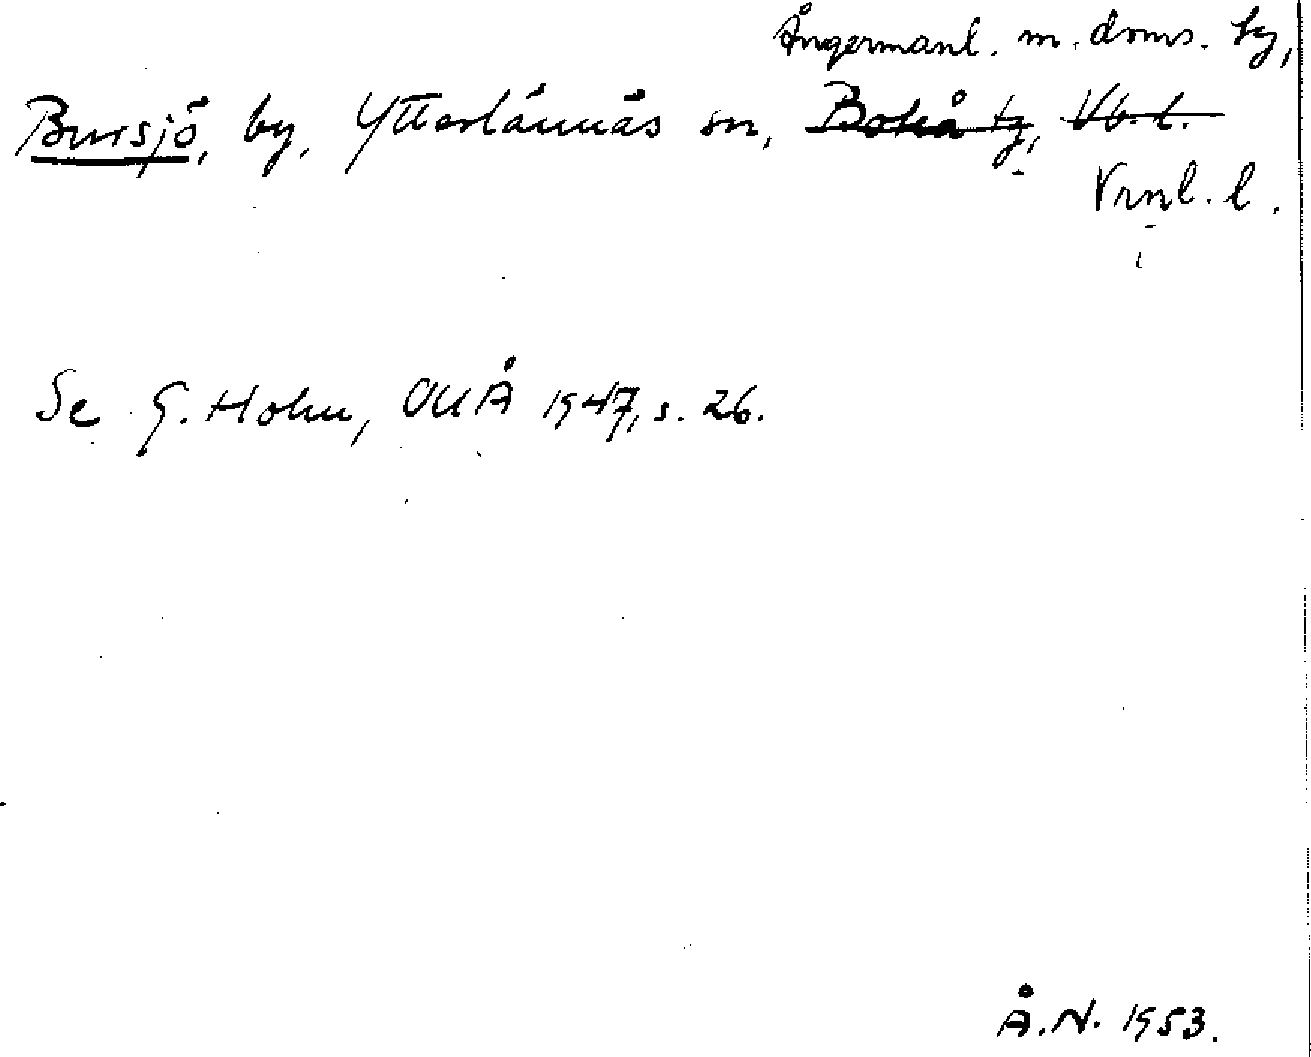 Ångermanl. m. doms. tg,
Bursjö, by, Ytterlännäs sn, Boteå tg, Vb. l.
Vrnl. l.
Se G. Holm, OUÅ 1947, s. 26.
Å.N. 1953.